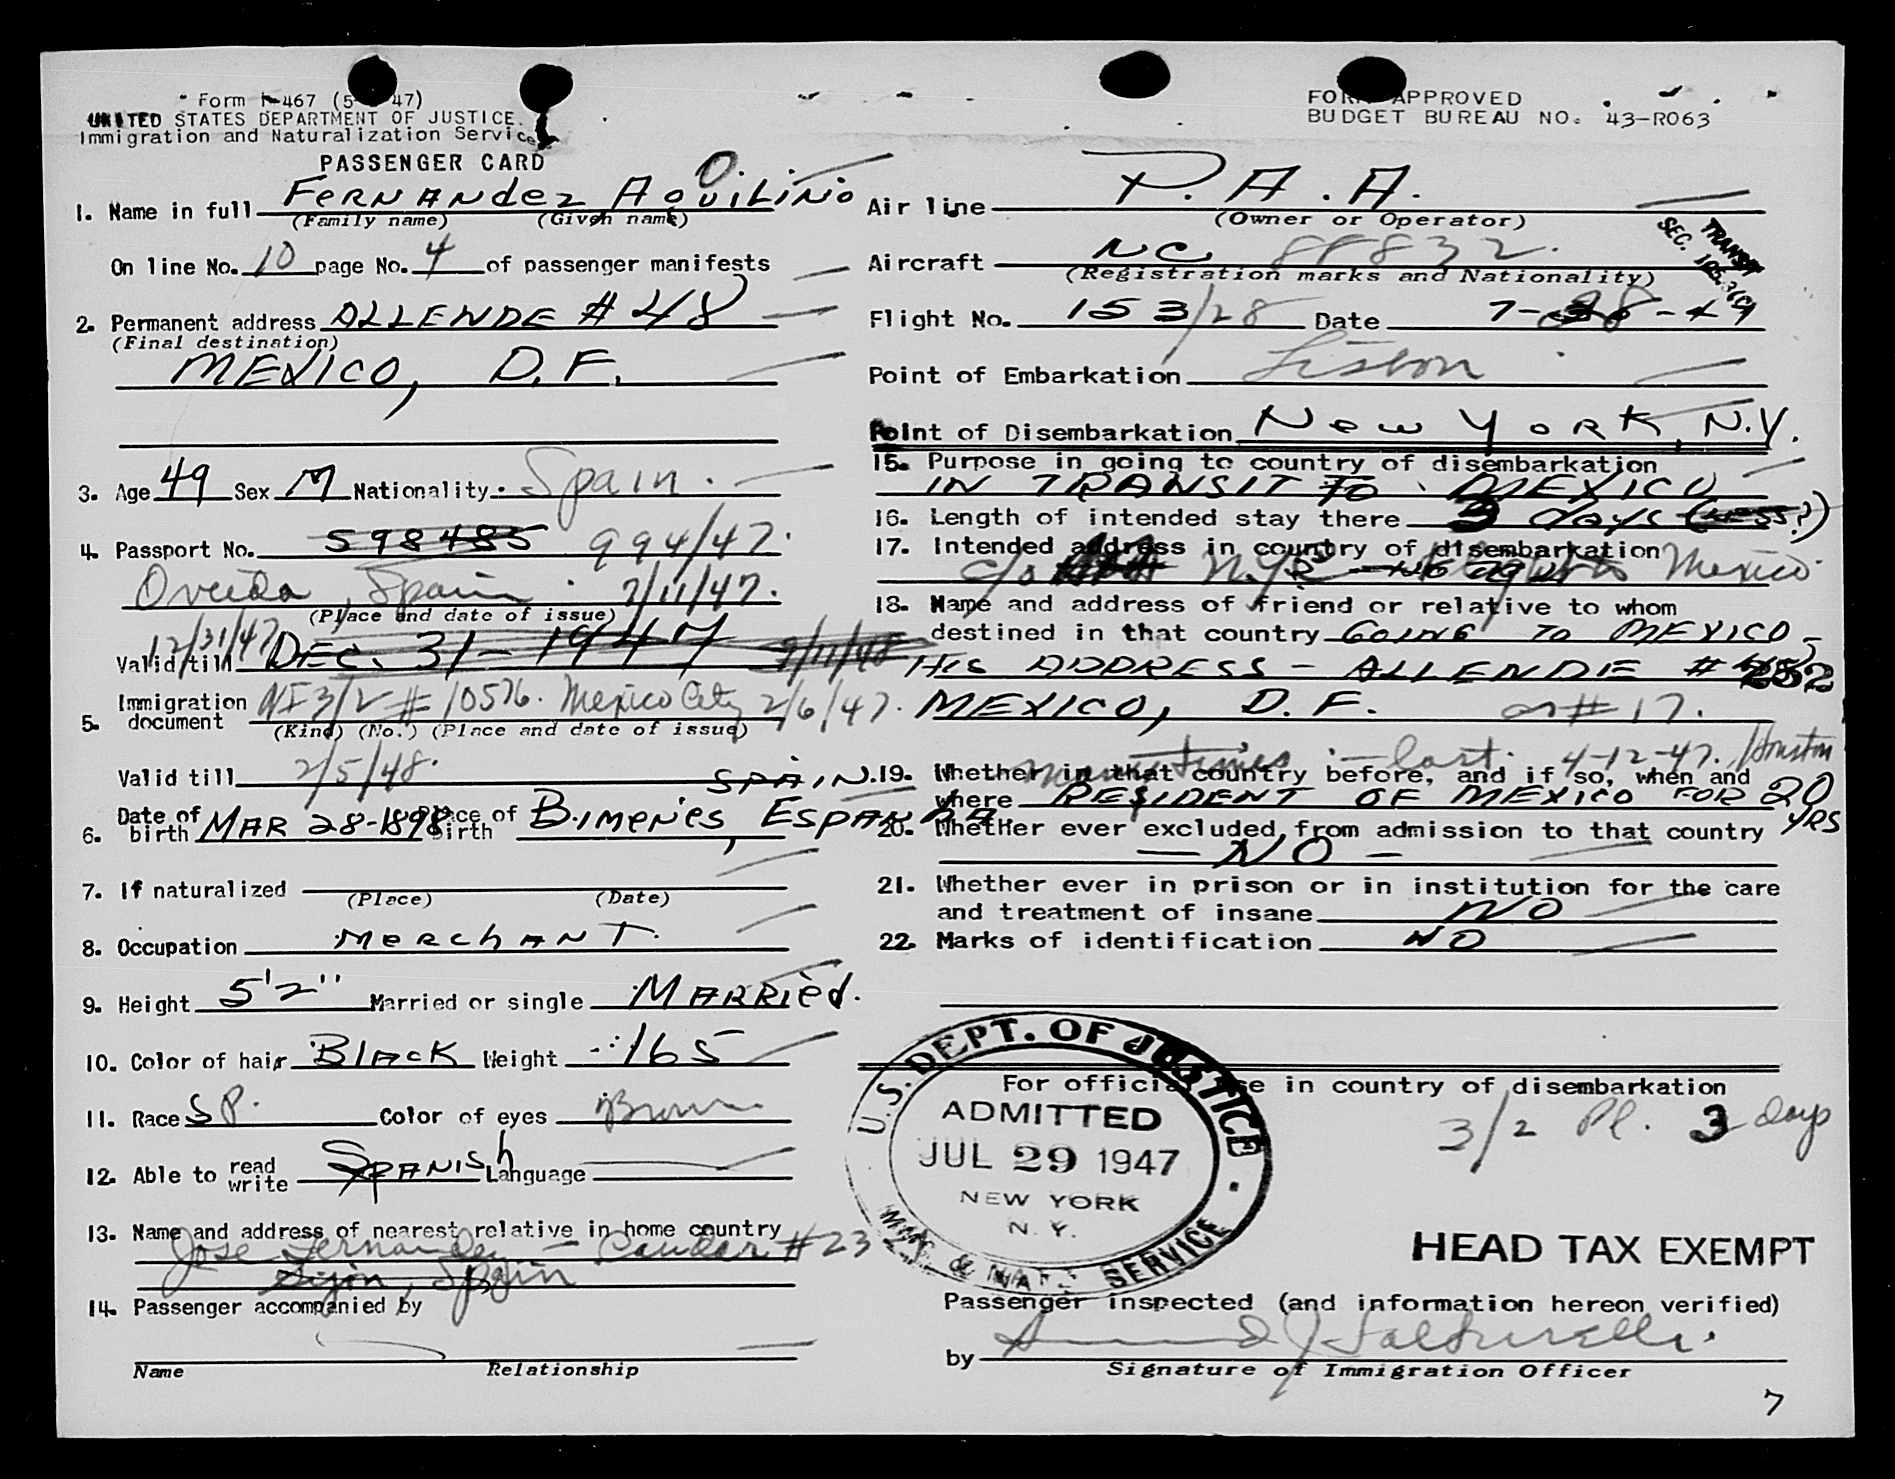 Form I-467 (5- -47)
UNITED STATES DEPARTMENT OF JUSTICE
Immigration and Naturalization Service
PASSENGER CARD
1. Name in full FERNANdez AQUILINO
(Family name) (Given name)
On line No. 10 page No. 4 of passenger manifests
2. Permanent address ALLENDE # 48
(Final destination)
MEXICO, D.F.
3. Age 49 Sex M Nationality Spain.
4. Passport No. 598485 994/47.
Oveida, Spain 7/11/47.
(Place and date of issue)
12/31/47
Valid till DEC. 31-1947 7/11/48
5. Immigration document NI 3/2 # 10576. Mexico City 2/6/47.
(Kind) (No.) (Place and date of issue)
Valid till 2/5/48.
SPAIN.
6. Date of birth MAR 28-1898 Place of birth Bimenes, ESPAÑA.
7. If naturalized
(Place) (Date)
8. Occupation MeRchANT.
9. Height 5'2" Married or single MARRied.
10. Color of hair BlAcK Weight 165
11. Race SP. Color of eyes Brown
12. Able to read write SPANISh Language
13. Name and address of nearest relative in home country
Jose Fernandez - #23
Gijon, Spain
14. Passenger accompanied by
Name Relationship
FORM APPROVED
BUDGET BUREAU NO. 43-R063
Air line P.A.A.
(Owner or Operator)
TRANSIT
SEC.
Aircraft NC 88832.
(Registration marks and Nationality)
Flight No. 153/28 Date 7-28-47
Point of Embarkation Lisbon
Point of Disembarkation New YORK, N.Y.
15. Purpose in going to country of disembarkation
IN TRANSIT TO MEXICO
16. Length of intended stay there 3 days (LESS?)
17. Intended address in country of disembarkation
c/o N.Y. Mexico
18. Name and address of friend or relative to whom
destined in that country GOING TO MEXICO-
HIS ADDRESS - ALLENDE #
MEXICO, D.F. or #17.
many times - last. 4-12-47. Houston
19. Whether in that country before, and if so, when and
where RESIDENT OF MEXICO FOR 20 YRS
20. Whether ever excluded from admission to that country
- NO -
21. Whether ever in prison or in institution for the care
and treatment of insane NO
22. Marks of identification NO
For official use in country of disembarkation
3/2 Pl. 3 days
U.S. DEPT. OF JUSTICE
ADMITTED
JUL 29 1947
NEW YORK
N.Y.
IMM. & NAT. SERVICE
HEAD TAX EXEMPT
Passenger inspected (and information hereon verified)
by
Signature of Immigration Officer
7